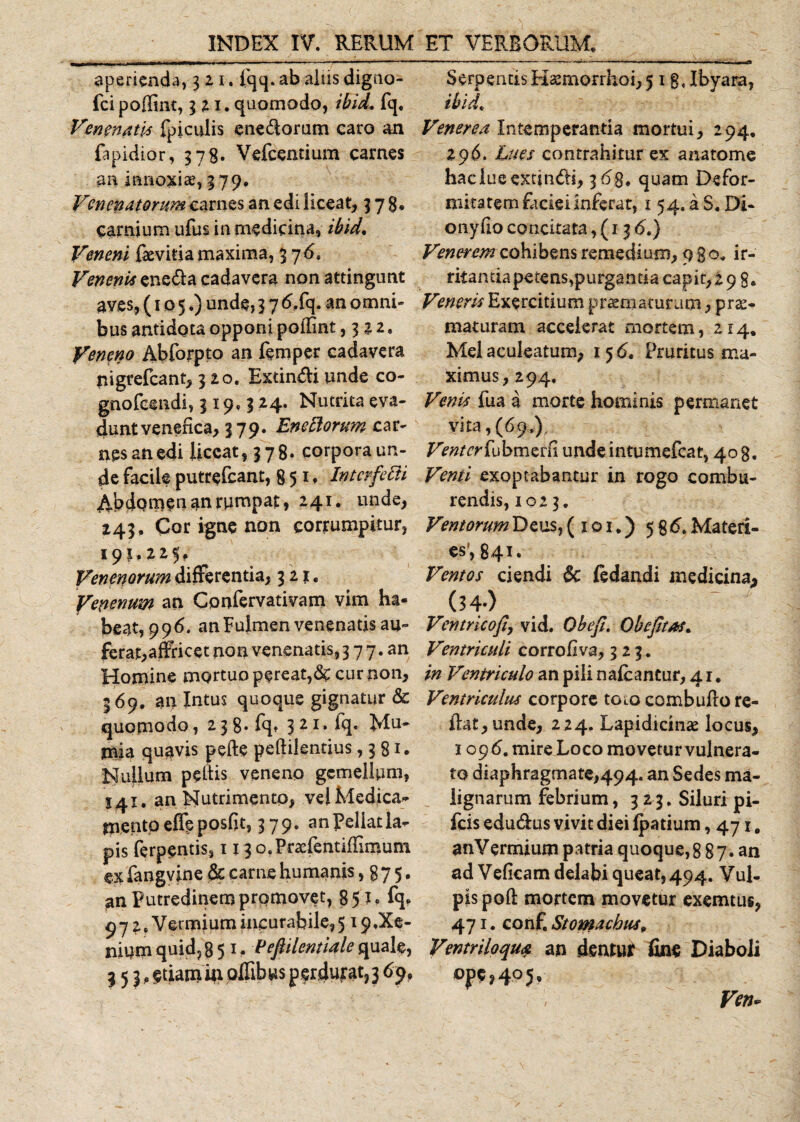 INDEX IV. RERUM ET VERBORUM.
aperienda, 321. ſqq. ab aliis digno-
ſci poſſint, 321. quomodo, ibid. ſq.
Venenatis ſpiculis enectorum caro an
ſapidior, 378. Veſcentium carnes
an innoxiæ, 379.
Venenatorum carnes an edi liceat, 378.
carnium uſus in medicina, ibid.
Veneni ſævitia maxima, 376.
Venenis enecta cadavera non attingunt
aves, (105.) unde, 376.ſq. an omni-
bus antidota opponi poſſint, 322.
Veneno Abſorpto an ſemper cadavera
nigreſcant, 320. Extincti unde co-
gnoſcendi, 319. 324. Nutrita eva-
dunt venefica, 379. Enectorum car-
nes an edi liceat, 378. corpora un-
de facile putreſcant, 851. Interfecti
Abdomen an rumpat, 241. unde,
243. Cor igne non corrumpitur,
191. 225.
Venenorum differentia, 321.
Venenum an Conſervativam vim ha-
beat, 996. an Fulmen venenatis au-
ferat, affricet non venenatis, 377. an
Homine mortuo pereat, & cur non,
369. an Intus quoque gignatur &
quomodo, 238. ſq. 321. ſq. Mu-
mia quavis peſte peſtilentius, 381.
Nullum peſtis veneno gemellum,
141. an Nutrimento, vel Medica-
mento eſſe posſit, 379. an Pellat la-
pis ſerpentis, 1130. Præſentiſſimum
ex ſangvine & carne humanis, 875.
an Putredinem promovet, 851. ſq.
972. Vermium incurabile, 519. Xe-
nium quid, 851. Peſtilentiale quale,
353. etiam in oſſibus perdurat, 369.
Serpentis Hæmorrhoi, 518. Ibyara,
ibid.
Venerea Intemperantia mortui, 294.
296. Lues contrahitur ex anatome
hac lue extincti, 368. quam Defor-
mitatem faciei inferat, 154. à S. Di-
onyſio concitata, (136.)
Venerem cohibens remedium, 980. ir-
ritantia petens, purgantia capit, 298.
Veneris Exercitium præmaturum, præ-
maturam accelerat mortem, 214.
Mel aculeatum, 156. Pruritus ma-
ximus, 294.
Venis ſua à morte hominis permanet
vita, (69.)
Venter ſubmerſi unde intumeſcat, 408.
Venti exoptabantur in rogo combu-
rendis, 1023.
Ventorum Deus, (101.) 586. Materi-
es, 841.
Ventos ciendi & ſedandi medicina,
(34.)
Ventricoſi, vid. Obeſi. Obeſitas.
Ventriculi corroſiva, 323.
in Ventriculo an pili naſcantur, 41.
Ventriculus corpore toto combuſto re-
ſtat, unde, 224. Lapidicinæ locus,
1096. mire Loco movetur vulnera-
to diaphragmate, 494. an Sedes ma-
lignarum febrium, 323. Siluri pi-
ſcis eductus vivit diei ſpatium, 471.
an Vermium patria quoque, 887. an
ad Veſicam delabi queat, 494. Vul-
pis poſt mortem movetur exemtus,
471. conf. Stomachus.
Ventriloquæ an dentur ſine Diaboli
ope, 405.
Ven-